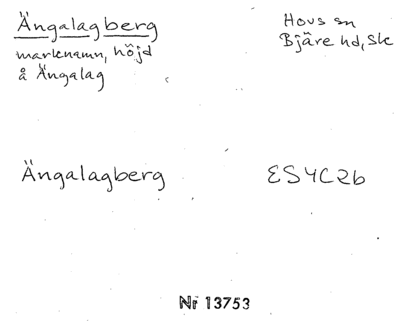 Ängalagberg
marknamn, höjd
å Ängalag
Hovs sn
Bjäre hd, Sk
Ängalagberg
ES4C2b
Nr 13753